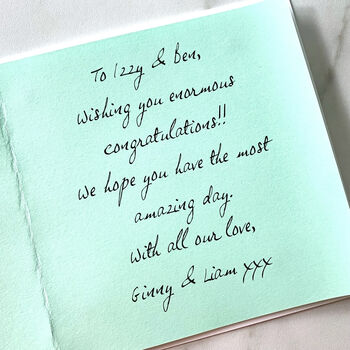 To Izzy & Ben,
Wishing you enormous
congratulations!!
We hope you have the most
amazing day.
With all our love,
Ginny & Liam xxx